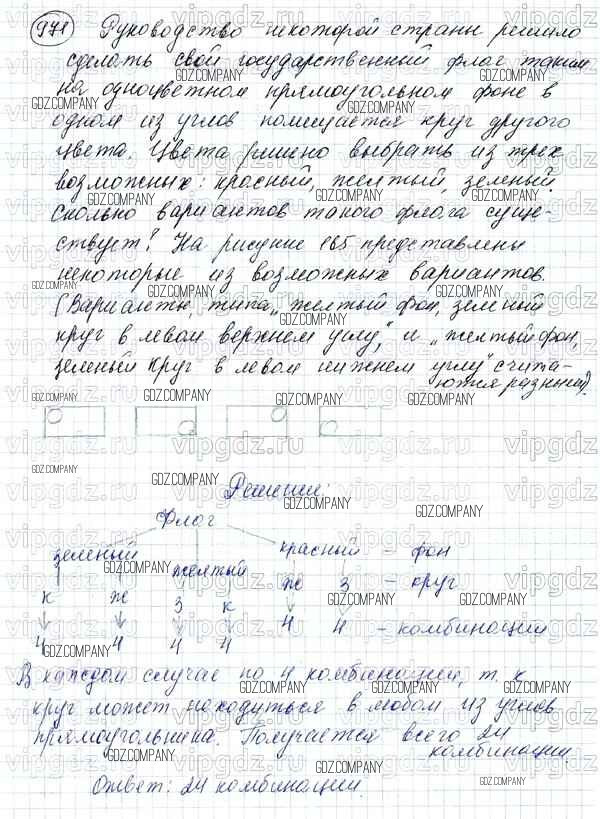 971 Руководство некоторой страны решило
сделать свой государственный флаг таким
на одноцветном прямоугольном фоне в
одном из углов помещается круг другого
цвета. Цвета решено выбрать из трех
возможных: красный, желтый зеленый.
Сколько вариантов такого флага суще-
ствует? На рисунке 165 представлены
некоторые из возможных вариантов.
(Варианты типа „желтый фон, зеленый
круг в левом верхнем углу," и „желтый фон,
зеленый круг в левом нижнем углу" счита-
ются разными).
Решение:
Флаг
зеленый желтый красный – фон
к ж з к ж з – круг
4 4 4 4 4 4 – комбинации
В каждом случае по 4 комбинаций, т. к
круг может находиться в любом из углов
прямоугольника. Получается всего 24
комбинации.
Ответ: 24 комбинации.
GDZ.COMPANY
vipgdz.ru